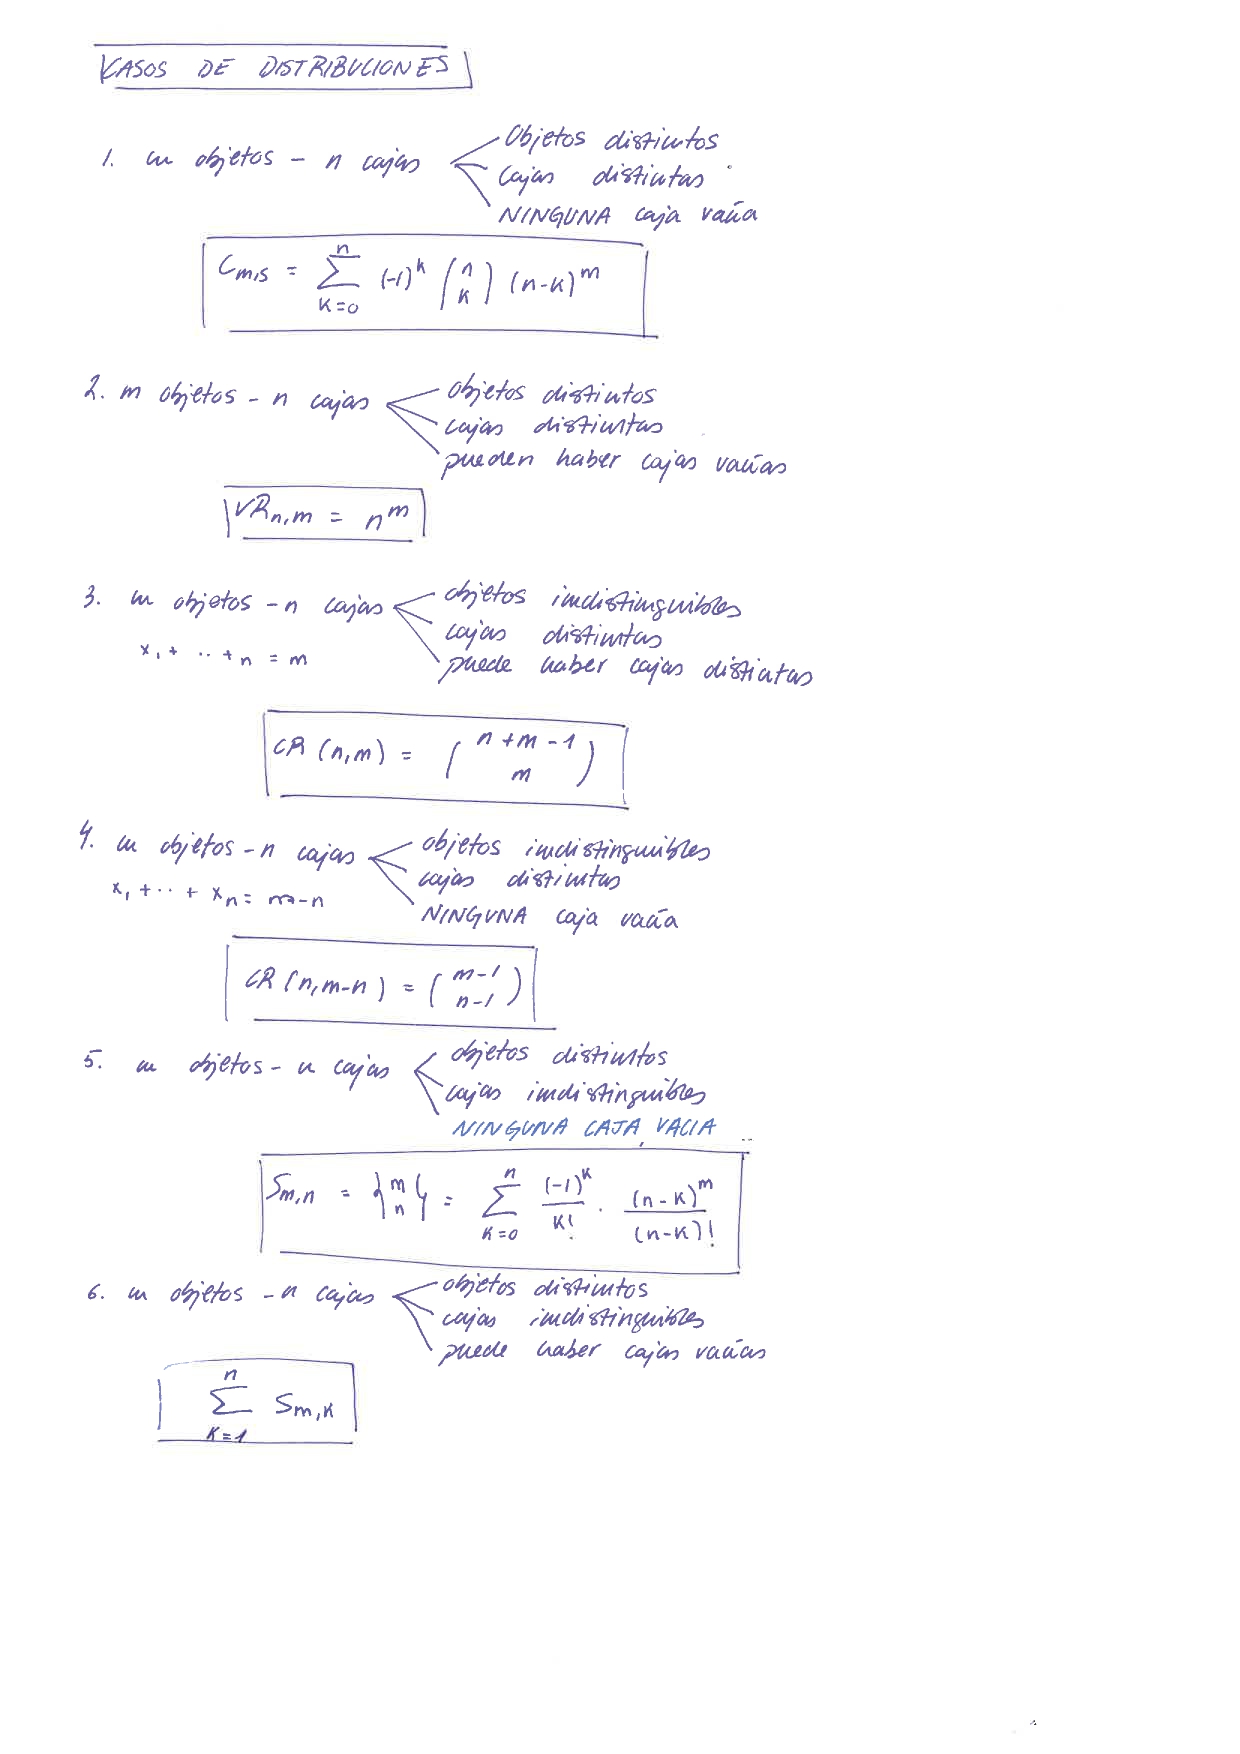 CASOS DE DISTRIBUCIONES
1. m objetos - n cajas
Objetos distintos
cajas distintas
NINGUNA caja vacía
C_{m,s} = \sum_{k=0}^{n} (-1)^k \binom{n}{k} (n-k)^m
2. m objetos - n cajas
objetos distintos
cajas distintas
pueden haber cajas vacías
VR_{n,m} = n^m
3. m objetos - n cajas
objetos indistinguibles
cajas distintas
x_1 + ·· +_n = m
puede haber cajas distintas
CR (n,m) = \binom{n+m-1}{m}
4. m objetos - n cajas
objetos indistinguibles
cajas distintas
x_1 + ·· + x_n = m-n
NINGUNA caja vacía
CR (n,m-n) = \binom{m-1}{n-1}
5. m objetos - n cajas
objetos distintos
cajas indistinguibles
NINGUNA CAJA VACIA
S_{m,n} = {m n} = \sum_{k=0}^{n} \frac{(-1)^k}{k!} · \frac{(n-k)^m}{(n-k)!}
6. m objetos - n cajas
objetos distintos
cajas indistinguibles
puede haber cajas vacías
\sum_{k=1}^{n} S_{m,k}